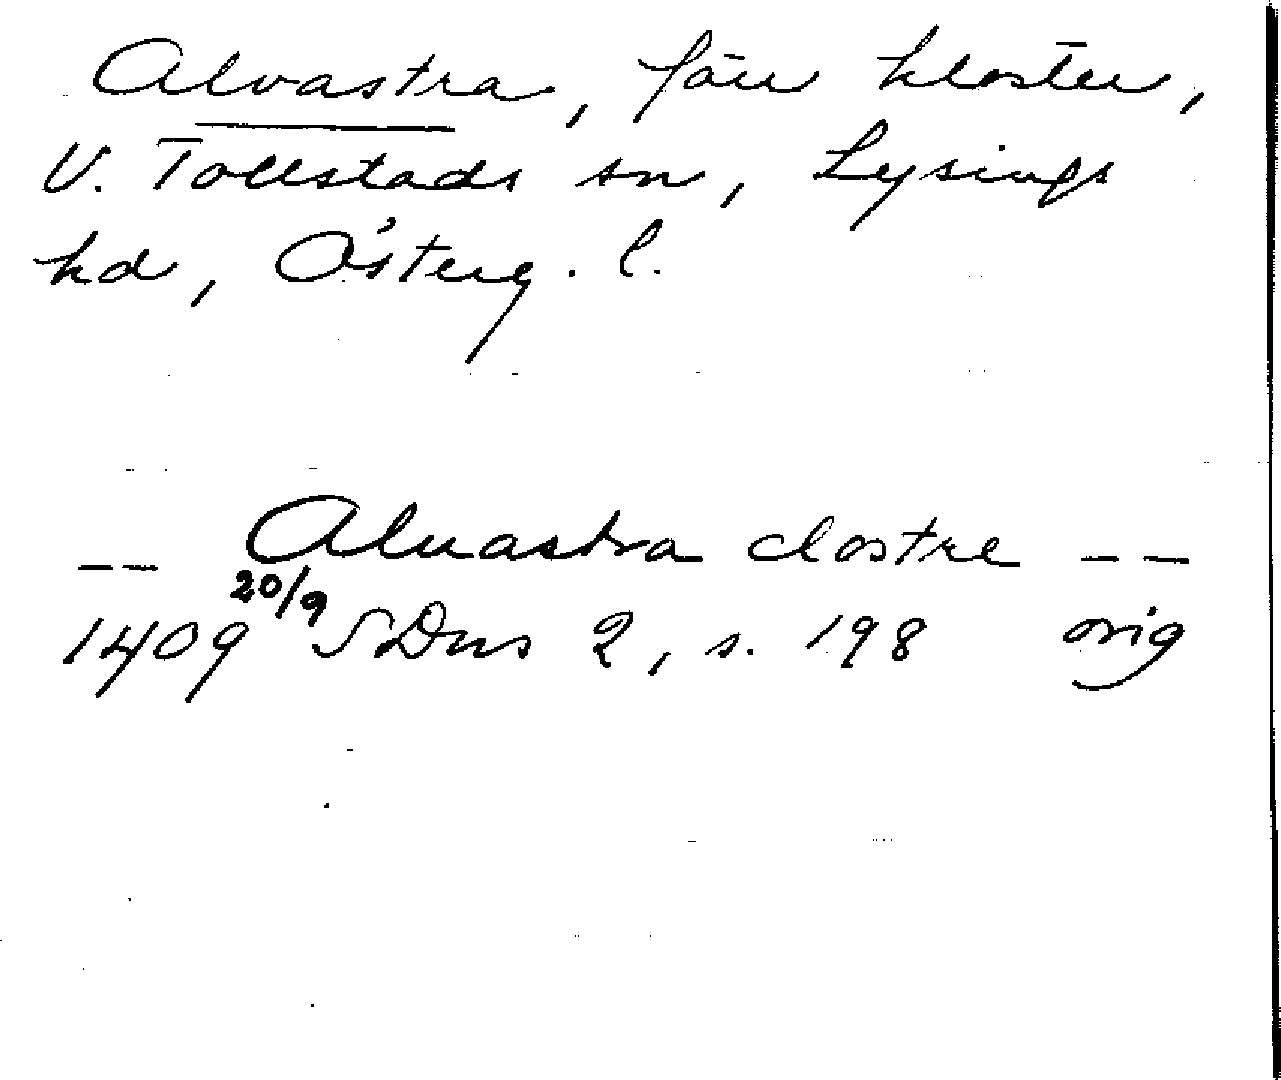 Alvastra, förr kloster,
V. Tollstads sn, Lysings
hd, Österg. l.
-- Aluastra clostre --
1409 20/9 SDns 2, s. 198 orig